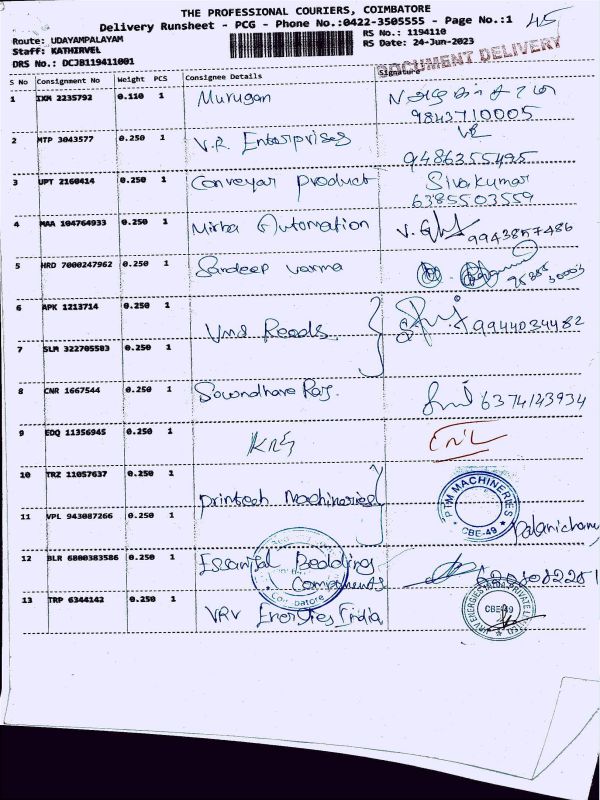 THE PROFESSIONAL COURIERS, COIMBATORE
Delivery Runsheet - PCG - Phone No.:0422-3505555 - Page No.:1
45
Route: UDAYAMPALAYAM
RS No.: 1194110
Staff: KATHIRVEL
RS Date: 24-Jun-2023
DRS No.: DCJB119411001
DOCUMENT DELIVERY
S No Consignment No Weight PCS Consignee Details Signature
1 IXM 2235792 0.110 1 Murugan
9843710005
2 MTP 3043577 0.250 1 V.R. Enterprises
9486355495
3 UPT 2160414 0.250 1 Conveyar product Sivakumar
6385503559
4 MAA 104764933 0.250 1 Mirha Automation 9943857486
5 HRD 7000247962 0.250 1 Sandeep varma
6 APK 1213714 0.250 1
Vms Reeds 9944034482
7 SLM 322705583 0.250 1
8 CNR 1667544 0.250 1 Soundhara Raj. 6374143934
9 EDQ 11356945 0.250 1
10 TRZ 11057637 0.250 1
Printech Machineries
PTM MACHINERIES
CBE-49
11 VPL 943087266 0.250 1 Palanichamy
12 BLR 6800383586 0.250 1 Essential Bedding
Components
Coimbatore
13 TRP 6344142 0.250 1 VRV Energies India
VRV ENERGIES INDIA PRIVATE LTD
CBE-49